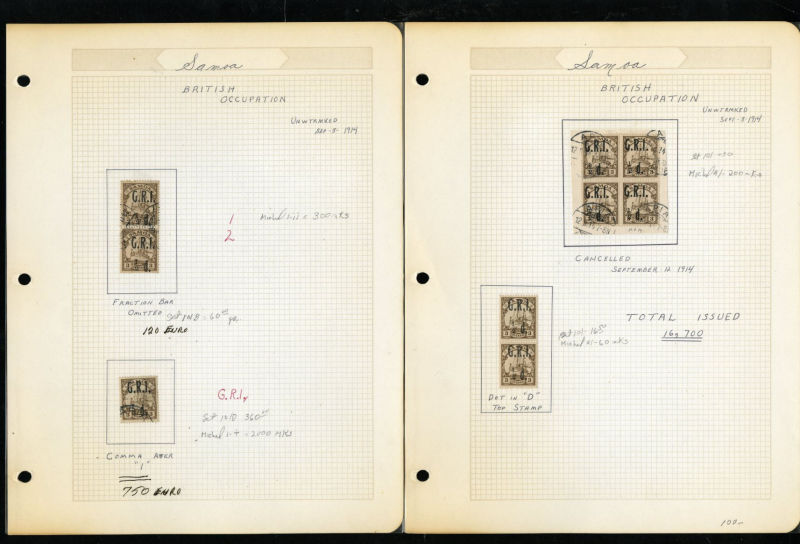 Samoa
BRITISH
OCCUPATION
UNWTRMKED
SEP -3- 1914
G.R.I.
G.R.I.
1
2
Michel 1-11 = 300 mks
FRACTION BAR
OMITTED
60
120 EURO
G.R.I.
G.R.I,
360
Michel 1-4 = 2000 MKS
COMMA AFTER
"I"
750 EURO
Samoa
BRITISH
OCCUPATION
UNWTRMKED
SEPT. 3 1914
G.R.I. G.R.I.
G.R.I. G.R.I.
Michel 200 mks
CANCELLED
SEPTEMBER 12 1914
G.R.I.
G.R.I.
Michel 60 mks
DOT IN "D"
TOP STAMP
TOTAL ISSUED
169,700
100-